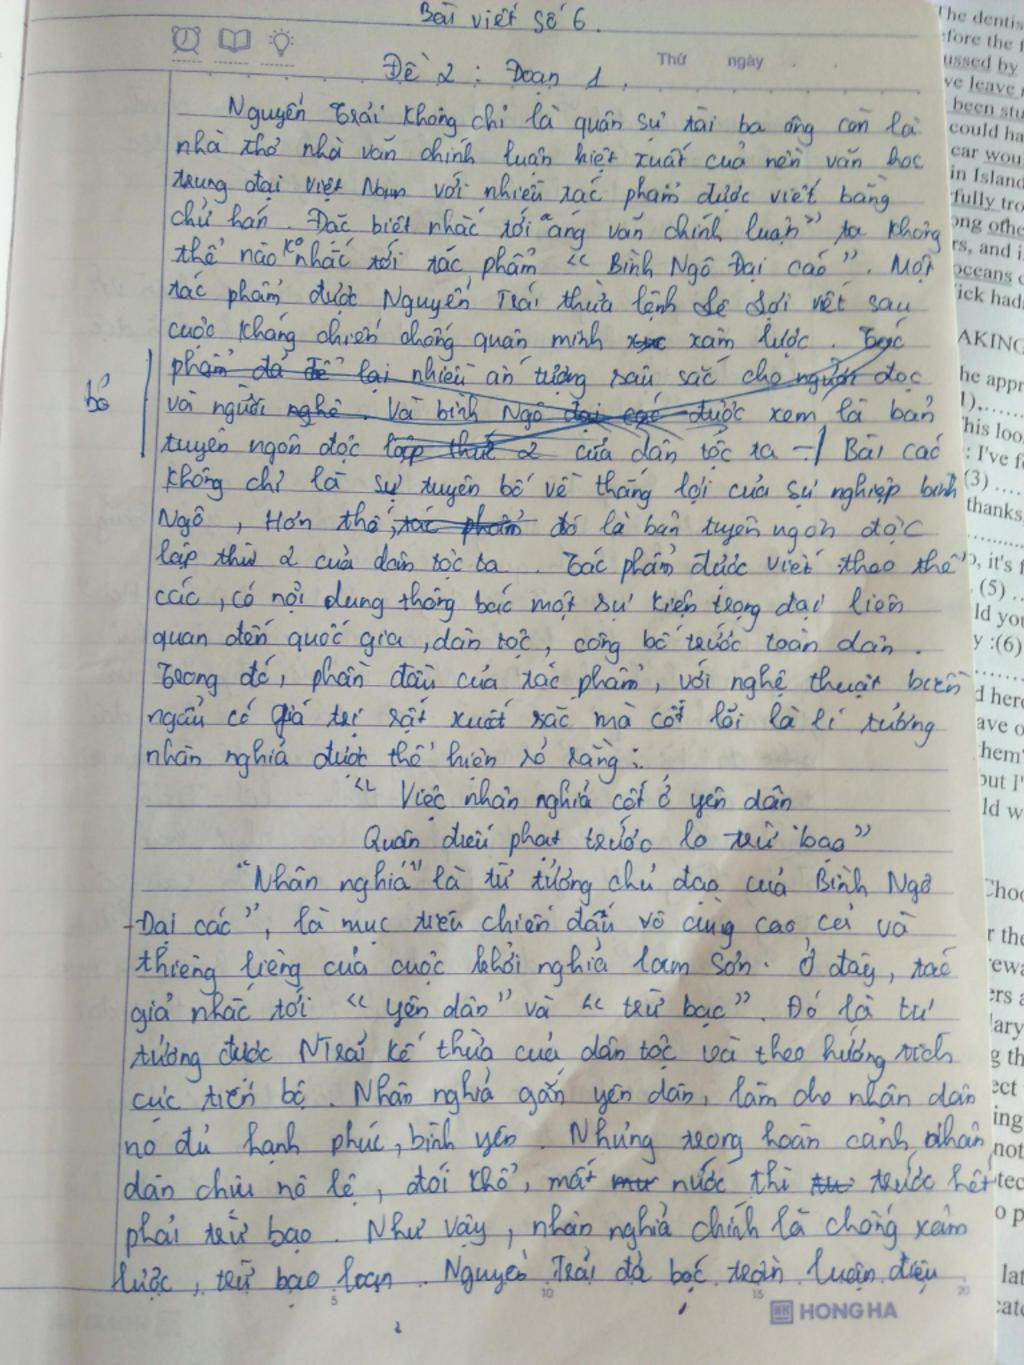 Bài viết số 6.
Thứ ngày
Đề 2 : Đoạn 1.
Nguyễn Trãi không chỉ là quân sự tài ba ông còn là
nhà thơ nhà văn chính luận kiệt xuất của nền văn học
trung đại Việt Nam với nhiều tác phẩm được viết bằng
chữ hán. Đặc biệt nhắc tới "áng văn chính luận" ta không
thể nào ko nhắc tới tác phẩm "Bình Ngô Đại cáo". Một
tác phẩm được Nguyễn Trãi thừa lệnh Lê Lợi viết sau
cuộc kháng chiến chống quân minh xâm lược. Tác
phẩm đã để lại nhiều ấn tượng sâu sắc cho người đọc
bỏ
và người nghe. Và bình Ngô đại cáo được xem là bản
tuyên ngôn độc lập thứ 2 của dân tộc ta Bài cáo
không chỉ là sự tuyên bố về thắng lợi của sự nghiệp bình
Ngô, Hơn thế, tác phẩm đó là bản tuyên ngôn độc
lập thứ 2 của dân tộc ta. Tác phẩm được viết theo thể
cáo, có nội dung thông báo một sự kiện trọng đại liên
quan đến quốc gia, dân tộc, công bố trước toàn dân.
Trong đó, phần đầu của tác phẩm, với nghệ thuật biền
ngẫu có giá trị rất xuất sắc mà cốt lõi là lí tưởng
nhân nghĩa được thể hiện rõ ràng:
"Việc nhân nghĩa cốt ở yên dân
Quân điếu phạt trước lo trừ bạo"
"Nhân nghĩa" là tư tưởng chủ đạo của Bình Ngô
Đại cáo", là mục tiêu chiến đấu vô cùng cao cả và
thiêng liêng của cuộc khởi nghĩa lam Sơn. Ở đây, tác
giả nhắc tới "yên dân" và "trừ bạo". Đó là tư
tưởng được NTrãi kế thừa của dân tộc và theo hướng tích
cực tiến bộ. Nhân nghĩa gắn yên dân, làm cho nhân dân
no đủ hạnh phúc, bình yên. Nhưng trong hoàn cảnh nhân
dân chịu nô lệ, đói khổ, mất nước thì trước hết
phải trừ bạo. Như vậy, nhân nghĩa chính là chống xâm
lược, trừ bạo loạn. Nguyễn Trãi đã bóc trần luận điệu
5 10 15 20
HONG HA
The dentis
ussed by
ve leave
been stu
could ha
car wou
in Island
fully tro
ong othe
rs, and i
oceans
ick had
AKING
he appr
This loo
: I've f
(3) ....
thanks
it's f
(5) ..
y :(6)
d here
ave o
hem'
out I'
ld w
Choo
r the
ewa
ers a
lary
g th
ect
ing
not
tec
o p
lat
cate